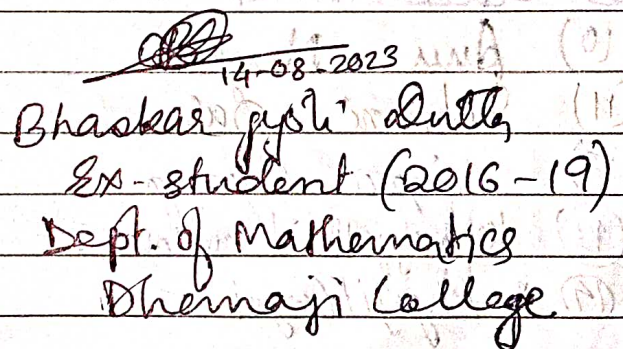 14-08-2023
Bhaskar Jyoti Dutta
Ex-student (2016-19)
Dept. of Mathematics
Dhemaji College